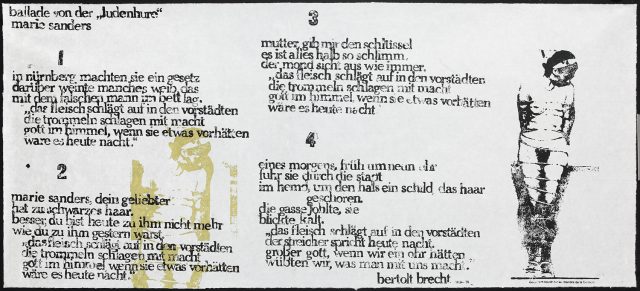 ballade von der „Judenhure"
marie sanders
1
in nürnberg machten sie ein gesetz
darüber weinte manches weib, das
mit dem falschen mann im bett lag.
„das fleisch schlägt auf in den vorstädten
die trommeln schlagen mit macht
gott im himmel, wenn sie etwas vorhätten
wäre es heute nacht."
2
marie sanders, dein geliebter
hat zu schwarzes haar.
besser, du bist heute zu ihm nicht mehr
wie du zu ihm gestern warst.
„das fleisch schlägt auf in den vorstädten
die trommeln schlagen mit macht
gott im himmel wenn sie etwas vorhätten
wäre es heute nacht."
3
mutter, gib mir den schlüssel
es ist alles halb so schlimm.
der mond sieht aus wie immer.
„das fleisch schlägt auf in den vorstädten
die trommeln schlagen mit macht
gott im himmel wenn sie etwas vorhätten
wäre es heute nacht
4
eines morgens, früh um neun uhr
fuhr sie durch die stadt
im hemd, um den hals ein schild, das haar
geschoren.
die gasse johlte, sie
blickte kalt.
„das fleisch schlägt auf in den vorstädten
der streicher spricht heute nacht.
großer gott, wenn wir ein ohr hätten
wüßten wir, was man mit uns macht."
bertolt brecht